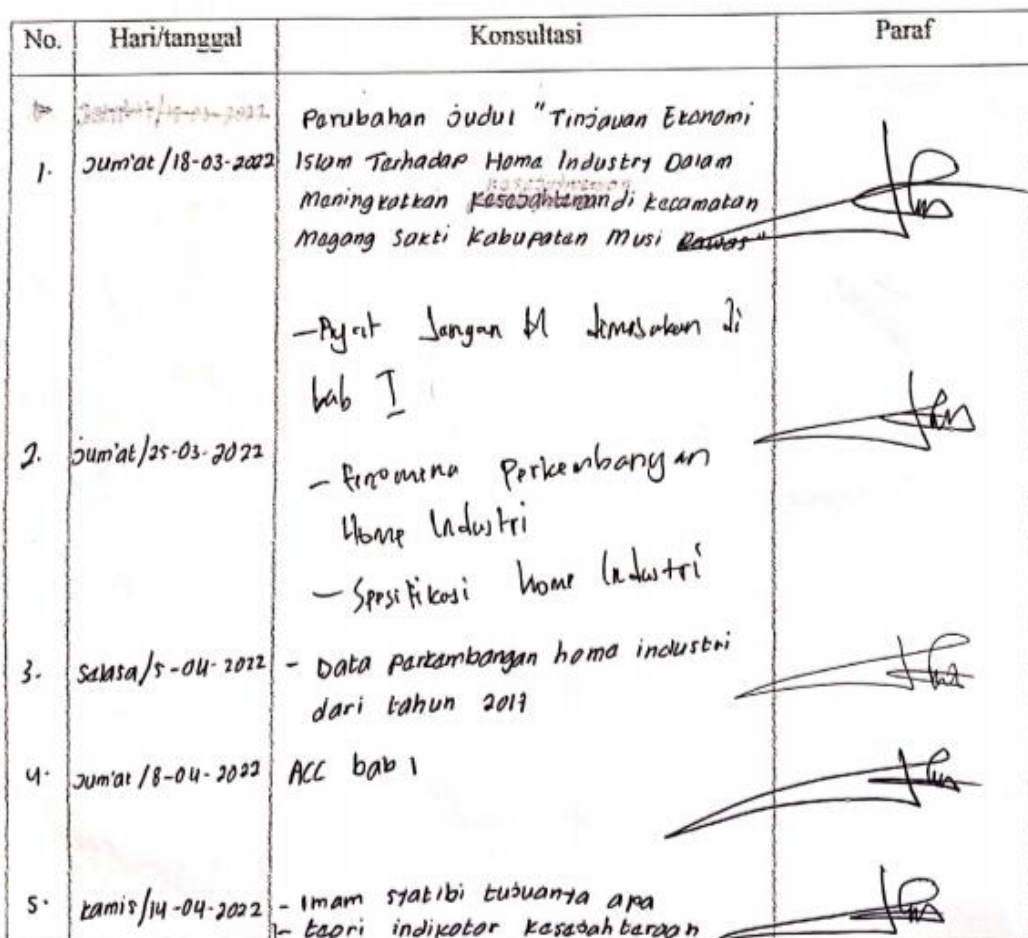 No. Hari/tanggal Konsultasi Paraf
1. Jum'at/18-03-2022 Perubahan judul "Tinjauan Ekonomi
Islam Terhadap Home Industry Dalam
Meningkatkan Kesejahteraan di kecamatan
Megang Sakti Kabupaten Musi Rawas"
2. Jum'at/25-03-2022
- Ayat Jangan di masukan di
bab I
- Fenomena Perkembangan
Home Industri
- Spesifikasi home Industri
3. Selasa/5-04-2022 - Data perkembangan home industri
dari tahun 2017
4. Jum'at/8-04-2022 ACC bab 1
5. Kamis/14-04-2022 - Imam syatibi tujuannya apa
- teori indikator kesejahteraan